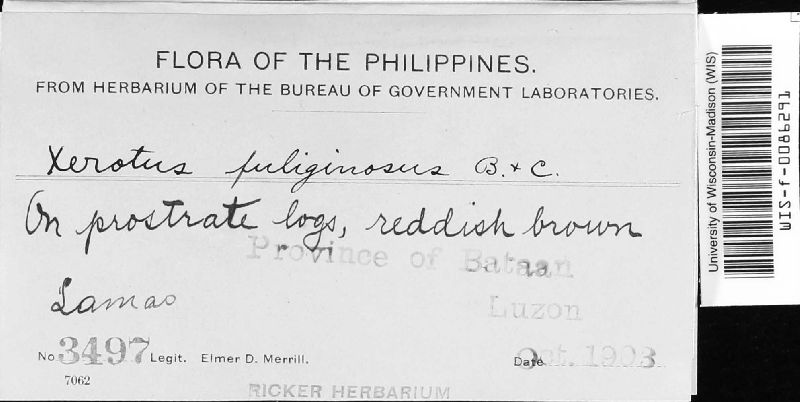 FLORA OF THE PHILIPPINES.
FROM HERBARIUM OF THE BUREAU OF GOVERNMENT LABORATORIES.
Xerotus fuliginosus B. & C.
On prostrate logs, reddish brown
Province of Bataan
Lamao
Luzon
No. 3497 Legit. Elmer D. Merrill.
Date Oct. 1903
7062
RICKER HERBARIUM
University of Wisconsin-Madison (WIS)
WIS-f-0086291